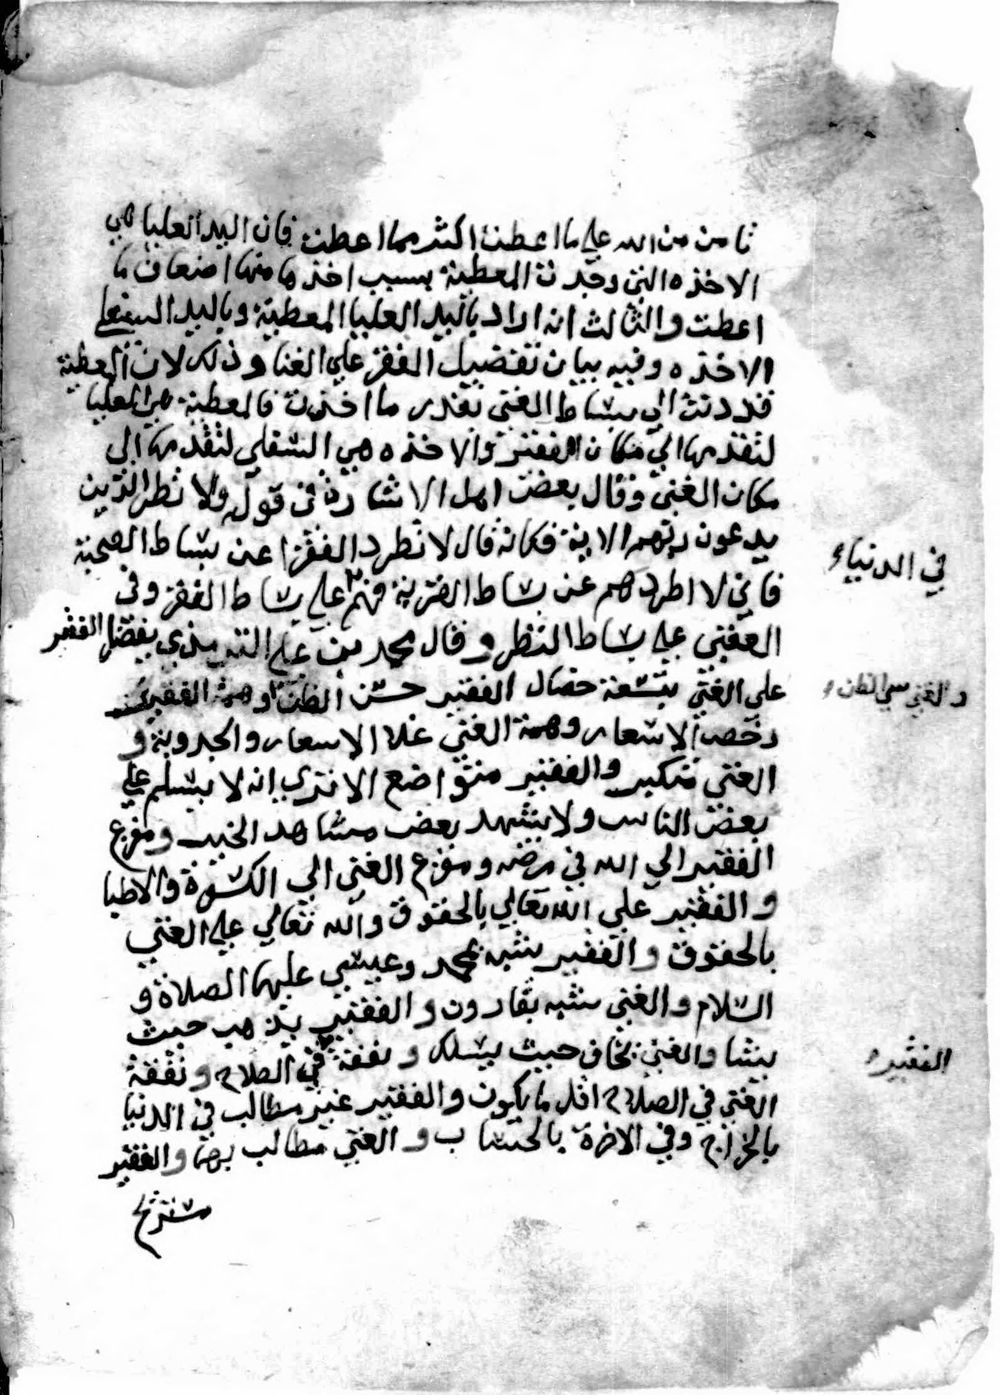 نا من من الله علي ما اعطت اكثر مما اعطت فان اليد العليا هي
الاخذه التي وجدت المعطية بسبب اخذها منها اضعاف ما
اعطت والثالث انه اراد باليد العليا المعطية وباليد السفلي
الاخذه وفيه بيان تفضيل الفقر علي الغنا وذلك لان المعطية
قد دنت الي بساط المغني بقدر ما اخذت فالمعطية هي العليا
لتقدمها الي مكان الفقير والاخذه هي السفلي لتقدمها الي
مكان الغني وقال بعض اهل الاشارة في قوله ولا تطرد الذين
يدعون ربهم الاية فكانه قال لا تطرد الفقرا عن بساط الصحبة
فاني لا اطردهم عن بساط القربة فهم علي بساط الفقر وفي
العقبي علي بساط النظر وقال محمد بن علي الترمذي يفضل الفقير
علي الغني بتسعة خصال الفقير حسن الظن وهمة الفقير
رخص الاسعار وهمة الغني غلا الاسعار والجدوبة و
الغني متكبر والفقير متواضع الا تري انه لا يسلم علي
بعض الناس ولا يشهد بعض مشاهد الخير ومفزع
الفقير الي الله في مرضه ومفزع الغني الي الكسوة والاطبا
والفقير علي الله تعالي بالحقوق والله تعالي علي الغني
بالحقوق والفقير يشبه بمحمد وعيسي عليهما الصلاة و
السلام والغني يشبه بقارون والفقير يذهب حيث
يشا والغني يخاف حيث يسلك ونفقة في الصلاح ونفقة
الغني في الصلاح اقل ما يكون والفقير غير مطالب في الدنيا
بالخراج وفي الاخرة بالحساب والغني مطالب بهما والفقير
يستريح
في الدنيا
والغني سي الظن
الفقير